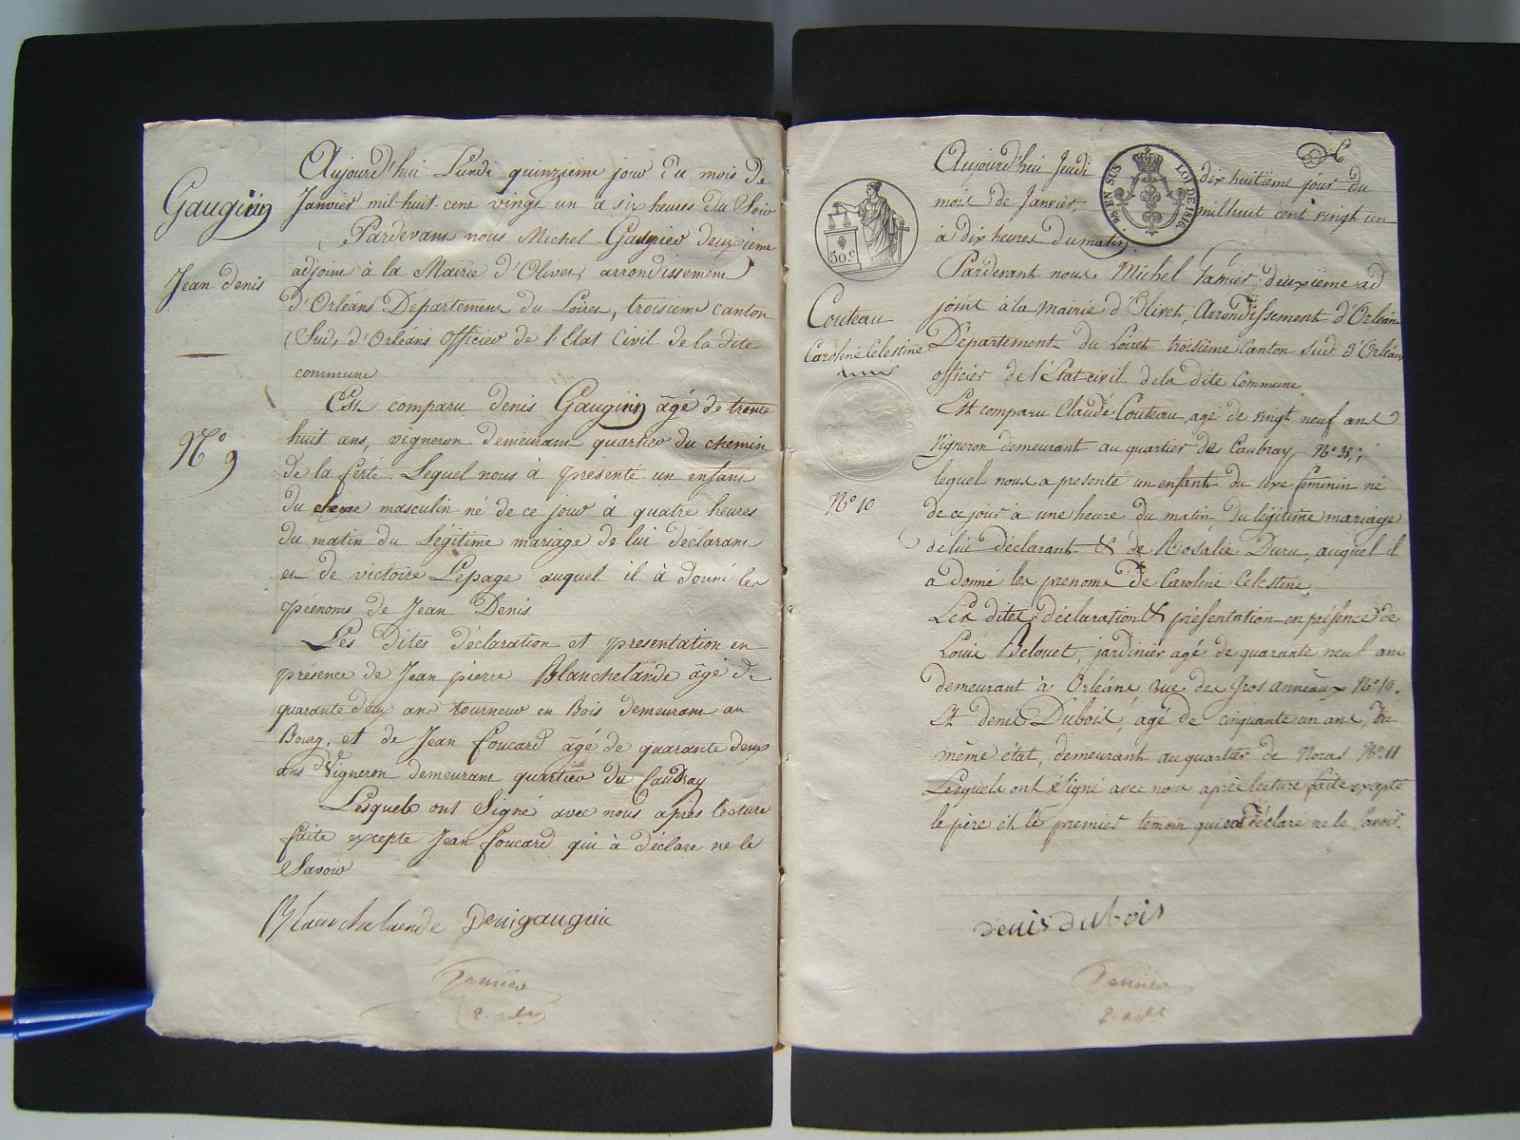 Gaugirin
Jean denis
N.° 9
Aujourd'hui Lundi quinzieme jour du mois de
Janvier mil huit cent vingt un à six heures du Soir
Pardevant nous Michel deuxieme
adjoint à la Mairie d'Olivet arrondissement
d'Orléans Departement du Loiret, troisieme canton
Sud d'Orléans officier de l'Etat Civil de la dite
commune
Est comparu denis Gaugirin âgé de trente
huit ans, vigneron demeurant quartier du chemin
de la ferté Lequel nous à présenté un enfant
du masculin né de ce jour à quatre heures
du matin du Légitime mariage de lui déclarant
et de victoire Lepage auquel il à donné les
prénoms de Jean Denis
Les dites déclaration et presentation en
présence de Jean pierre Blanchelande âgé de
quarante deux ans tourneur en Bois demeurant au
Bourg, et de Jean foucard âgé de quarante deux
ans Vigneron demeurant quartier du Caubray
Lesquels ont Signé avec nous après lecture
faite excepte Jean foucard qui à déclaré ne le
Savoir
Blanchelande Denigauguin
2. adj
50 c.
Couteau
Caroline Celestine
N.° 10
EN SUS LOI DE 1816.
Aujourd'hui Jeudi dix huitieme jour du
mois de Janvier milhuit cent vingt un
à dix heures du matin
Pardevant nous Michel deuxième ad
joint à la mairie d'Olivet, Arrondissement d'Orléans
Département du Loiret troisième Canton sud d'Orléans
officier de l'état civil de la dite Commune
Est comparu Claude Couteau agé de vingt neuf ans
Vigneron demeurant au quartier de Caubray N.° 35;
lequel nous a presenté un enfant du sexe féminin né
de ce jour à une heure du matin, du légitime mariage
de lui déclarant & de Rosalie Duru, auquel il
a donné les prenoms de Caroline Celestine
Les dites déclaration & présentation en présence de
Louis Belouet, jardinier agé de quarante neuf ans
demeurant à Orléans rue des Gros anneaux N.° 10.
Et denis Dubois, âgé de cinquante un ans, du
même état, demeurant au quartier de Noras N.° 11
Lesquels ont signé avec nous après lecture faite excepté
le père et le premier temoin qui ont déclaré ne le savoir.
denis dubois
2. adj